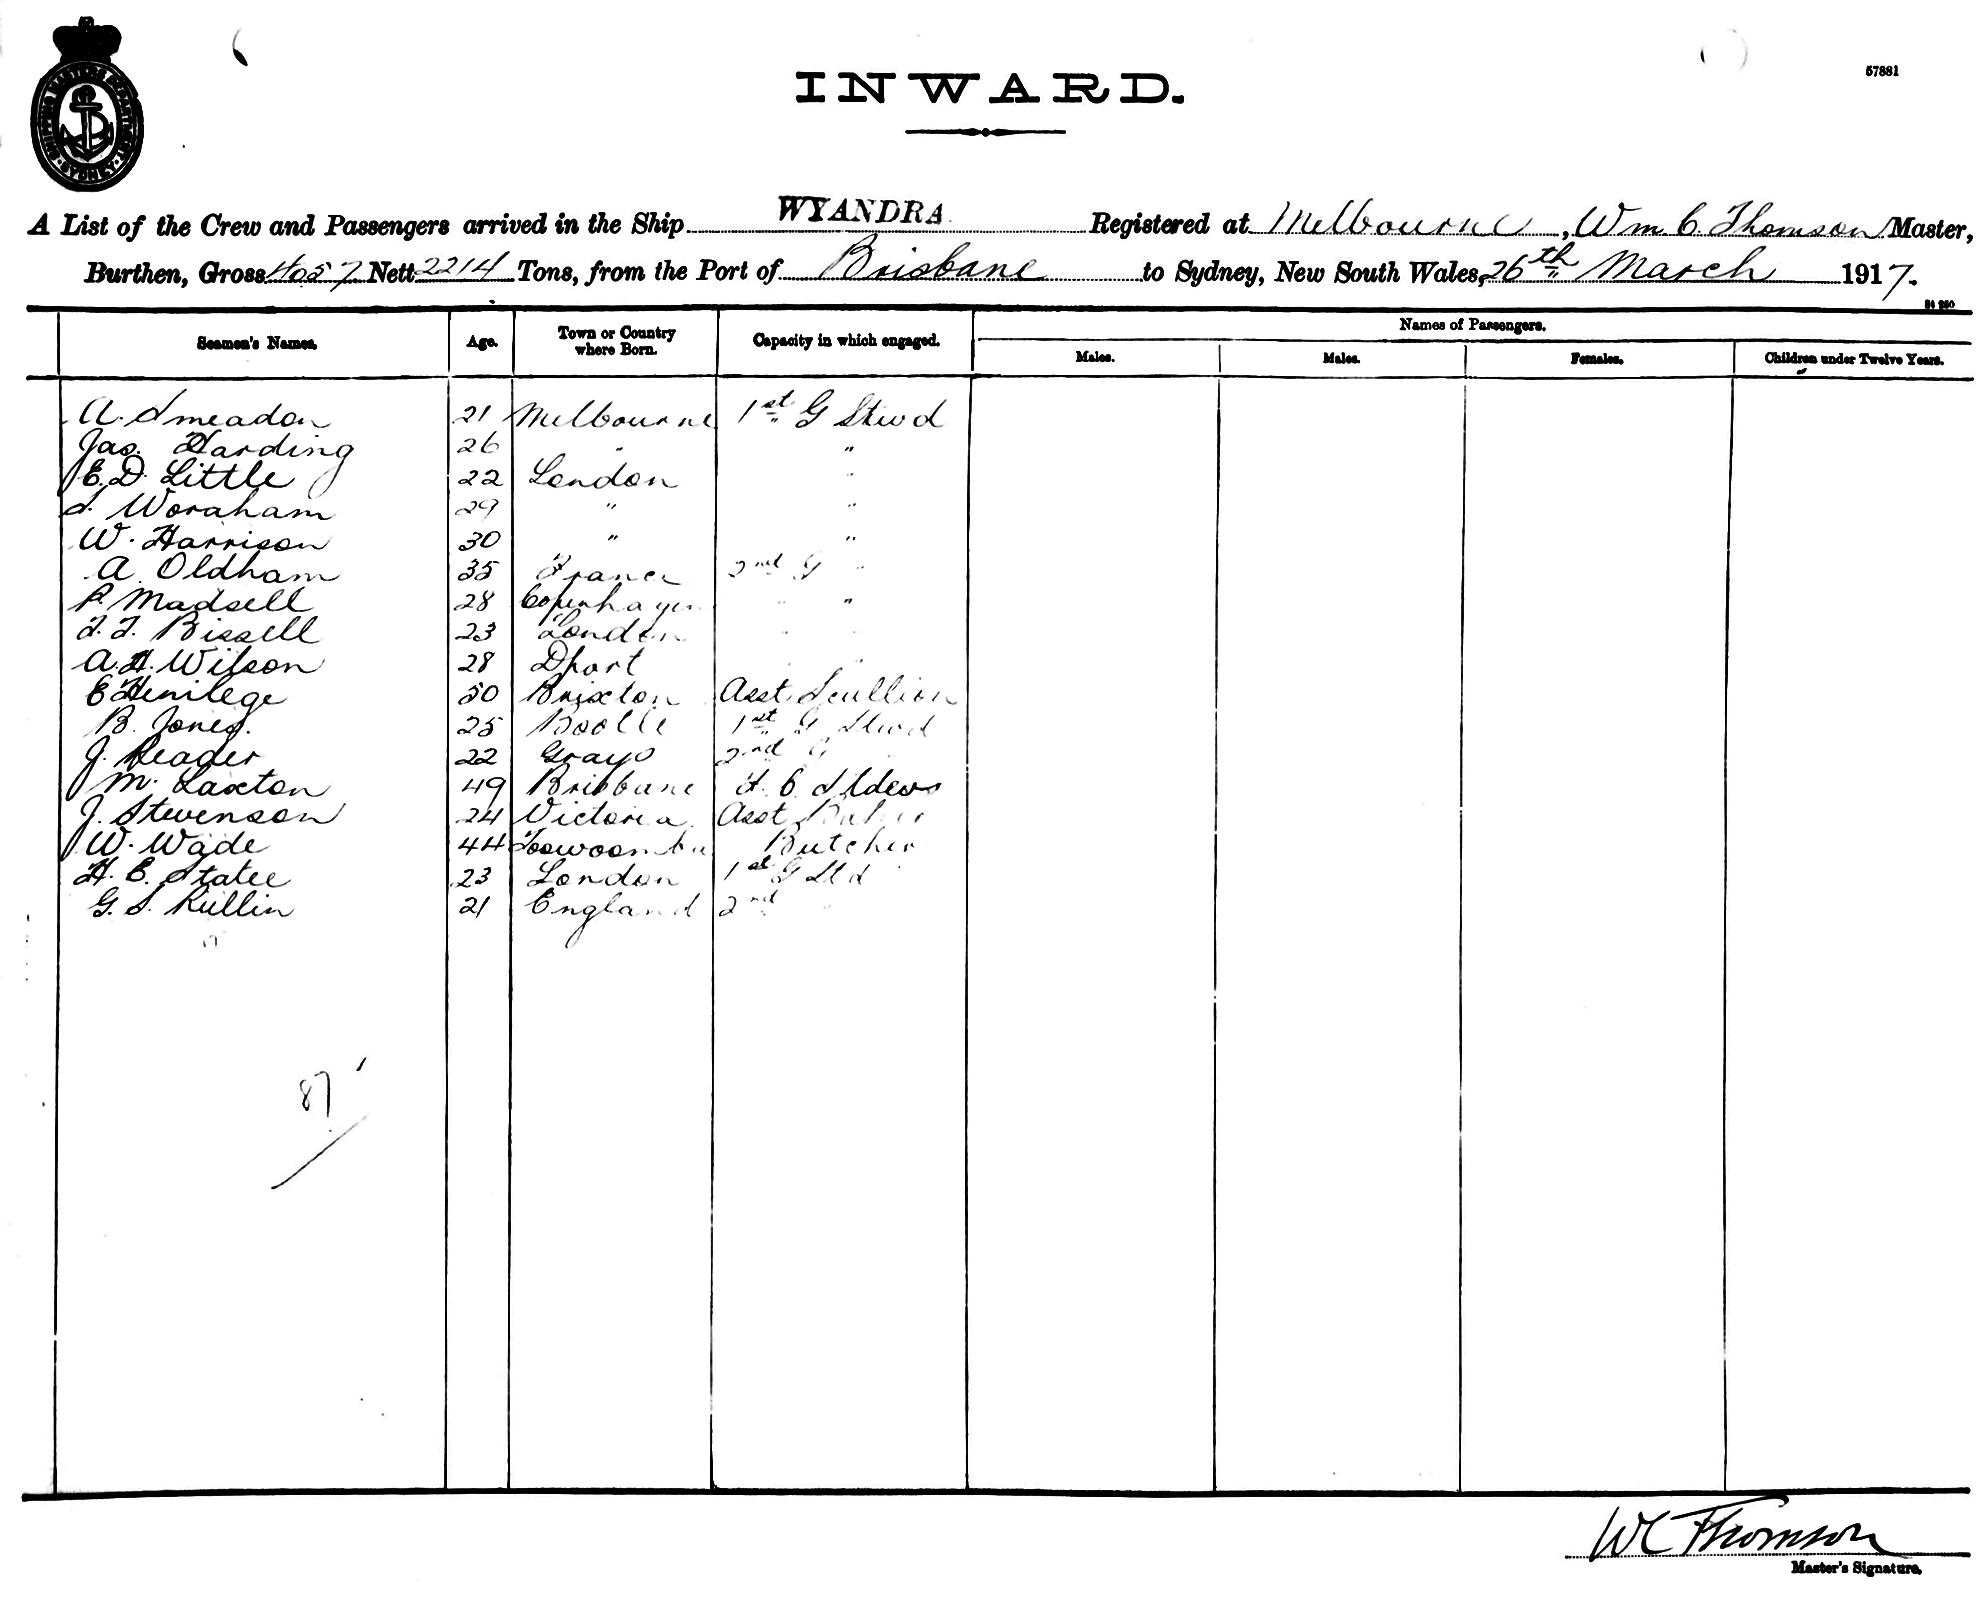 SHIPPING MASTERS DEPARTMENT SYDNEY
57881
INWARD.
A List of the Crew and Passengers arrived in the Ship WYANDRA Registered at Melbourne, Wm C. Thomson Master,
Burthen, Gross 4057 Nett 2214 Tons, from the Port of Brisbane to Sydney, New South Wales, 26th March 1917.
Names of Passengers.
Seamen's Names. Age. Town or Country where Born. Capacity in which engaged. Males. Males. Females. Children under Twelve Years.
A. Smeadon 21 Melbourne 1st G Stewd
Jas. Harding 26 " "
E. D. Little 22 London "
S. Woraham 29 " "
W. Harrison 30 " "
A. Oldham 35 France 2nd G "
P. Madsell 28 Copenhagen " "
T. T. Bissell 23 London " "
A. H. Wilson 28 Dport " "
E Henilege 50 Brixton Asst. Scullion
B. Jones. 25 Bootle 1st G Stwd
J. Reader 22 Grays 2nd G
M. Laxton 49 Brisbane F. C. Stdess
J. Stevenson 24 Victoria Asst Baker
W. Wade 44 Toowoomba Butcher
H. E. Statee 23 London 1st G Std
G. S. Rullin 21 England 2nd "
87
WC Thomson
Master's Signature.